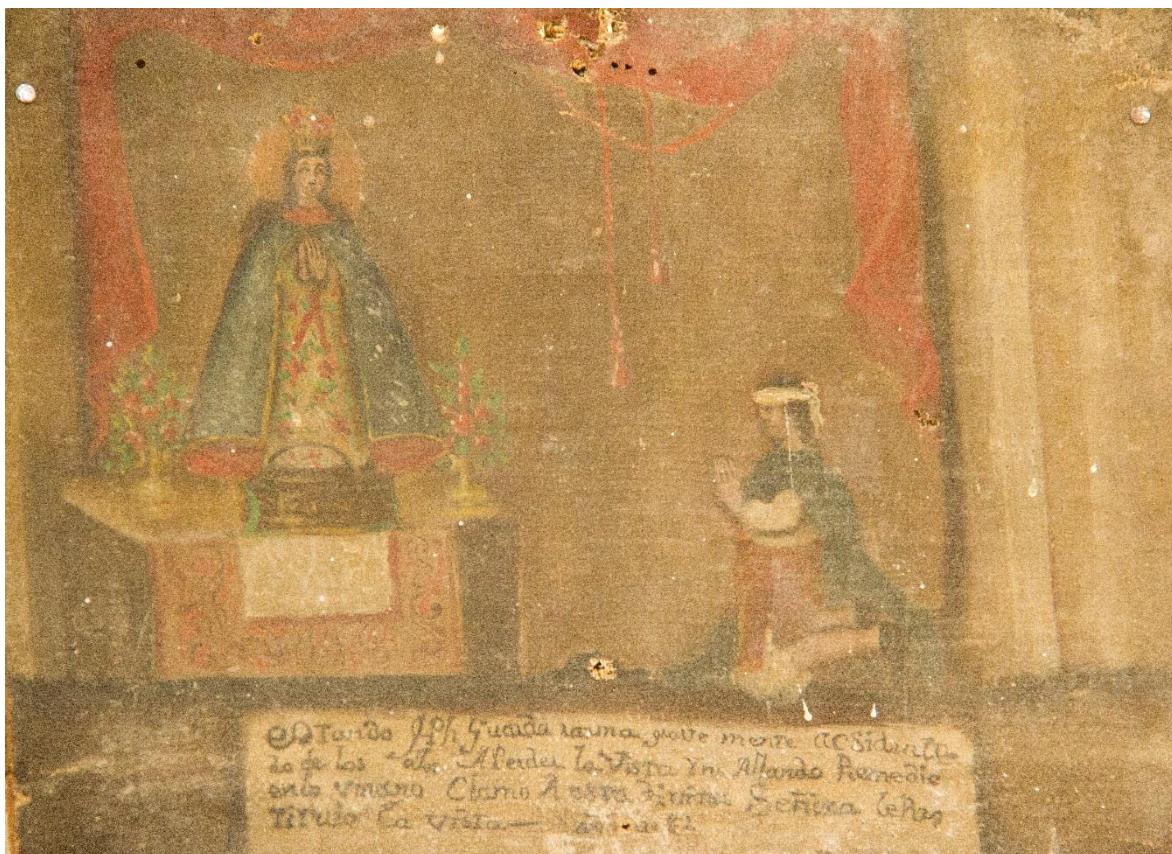 EsTando Jph Guarda rama grave mente acsidenta
do de los A Perder la Vista Y no Allando Remedio
en lo Vmano Clamo A esta Divina Señora le Res
Tituio la Vista — año de